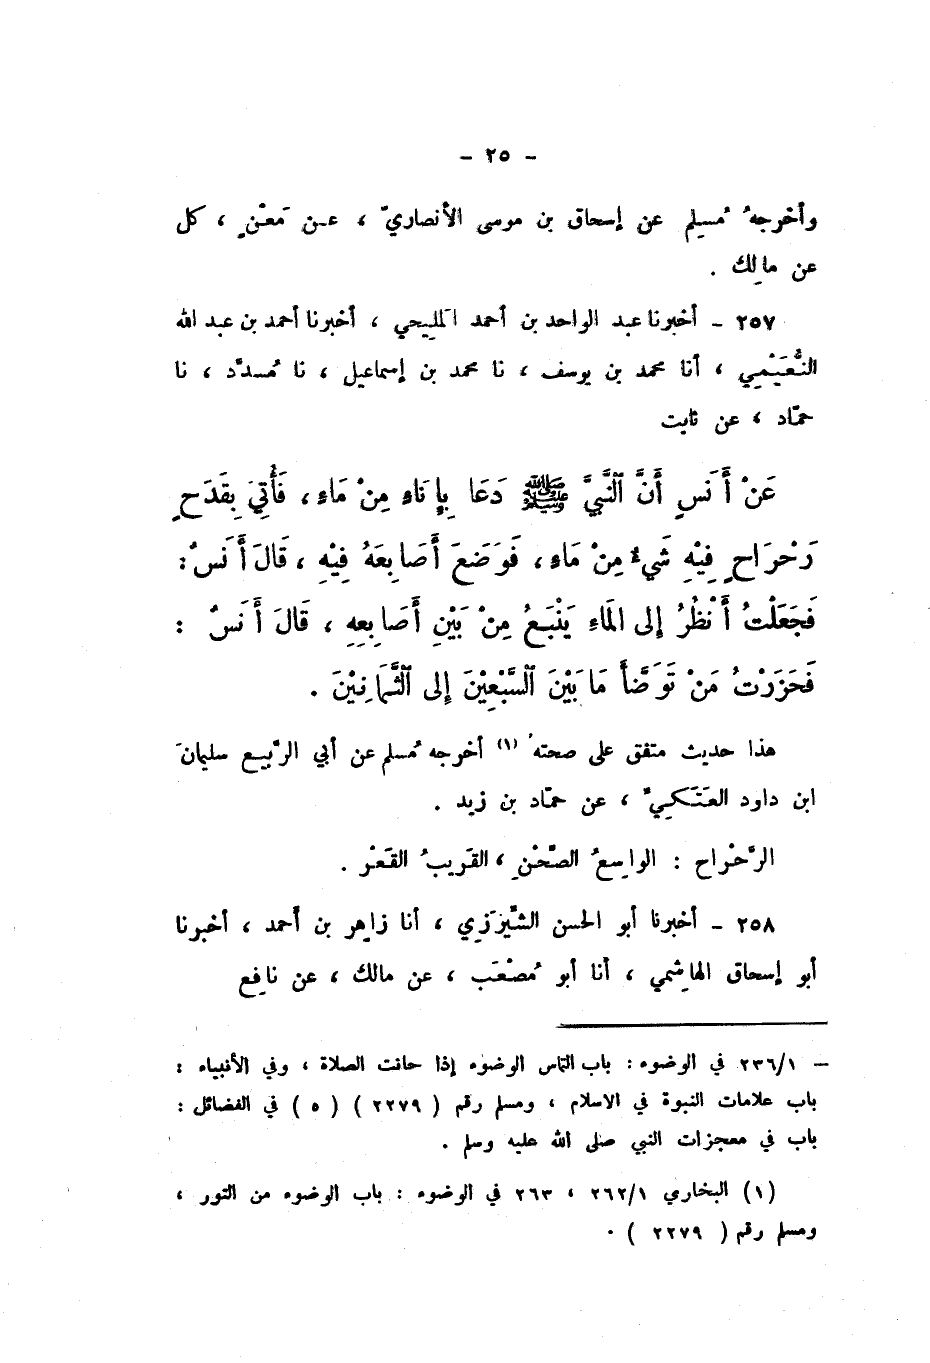 - ٢٥ -
وأخرجهُ مُسلِم عن إسحاق بن موسى الأنصاريّ ، عن مَعْنٍ ، كل
عن مالِك .
٢٥٧ - أخبرنا عبد الواحد بن أحمد المليحي ، أخبرنا أحمد بن عبد الله
النُّعَيْمي ، أنا محمد بن يوسف ، نا محمد بن إسماعيل ، نا مُسدَّد ، نا
حمّاد ، عن ثابت
عَنْ أَنَسٍ أَنَّ ٱلنَّبِيَّ ﷺ دَعَا بِإِنَاءٍ مِنْ مَاءٍ ، فَأُتِيَ بِقَدَحٍ
رَحْرَاحٍ فِيْهِ شَيْءٌ مِنْ مَاءٍ ، فَوَضَعَ أَصَابِعَهُ فِيْهِ ، قَالَ أَنَسٌ :
فَجَعَلْتُ أَنْظُرُ إِلى المَاءِ يَنْبَعُ مِنْ بَيْنِ أَصَابِعِهِ ، قَالَ أَنَسٌ :
فَحَزَرْتُ مَنْ تَوَضَّأَ مَا بَيْنَ ٱلسَّبْعِيْنَ إِلى ٱلثَّمَانِيْنَ .
هذا حديث متفق على صحته (١) أخرجه مُسلم عن أبي الرَّبيع سليمانَ
ابن داود العَتَكيّ ، عن حمّاد بن زيد .
الرَّحْراح : الواسِعُ الصَّحْنِ ، القَريبُ القَعْر .
٢٥٨ - أخبرنا أبو الحسن الشِّيْرَزي ، أنا زاهِر بن أَحمد ، أخبرنا
أبو إسحاق الهاشِمي ، أَنا أبو مُصْعَب ، عن مالك ، عن نافِع
- ٢٣٦/١ في الوضوء : باب التماس الوضوء إذا حانت الصلاة ، وفي الأنبياء :
باب علامات النبوة في الاسلام ، ومسلم رقم ( ٢٢٧٩ ) ( ٥ ) في الفضائل :
باب في معجزات النبي صلى الله عليه وسلم .
(١) البخاري ٢٦٢/١ ، ٢٦٣ في الوضوء : باب الوضوء من التور ،
ومسلم رقم ( ٢٢٧٩ ) .